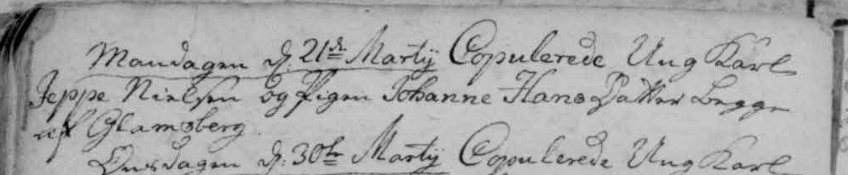 Mandagen d: 21de Martij Copulerede Ung Karl
Jeppe Nielsen og Pigen Johanne Hans Datter begge
af Glamsberg
Onsdagen d: 30te Martij Copulerede Ung Karl